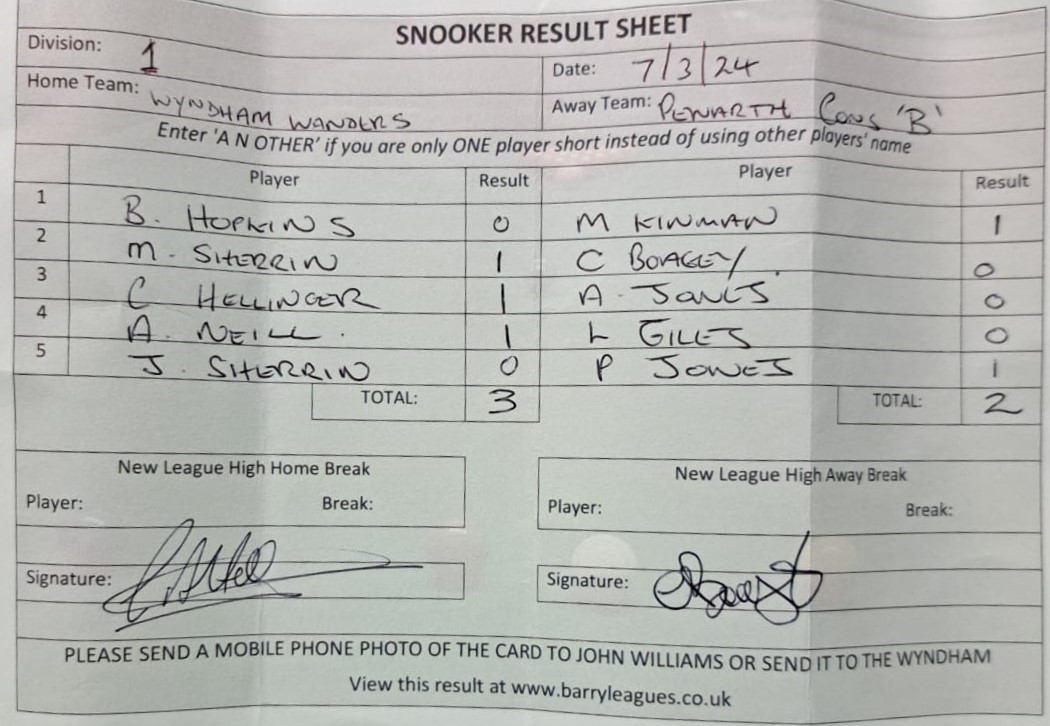 SNOOKER RESULT SHEET
Division: 1
Date: 7/3/24
Home Team: WYNDHAM WANDERS
Away Team: PENARTH CONS 'B'
Enter 'A N OTHER' if you are only ONE player short instead of using other players' name
Player Result Player Result
1 B. HOPKINS 0 M KINMAN 1
2 M. SHERRIN 1 C BOAGEY 0
3 C HELLINGER 1 A. JONES 0
4 A. NEILL. 1 L GILES 0
5 J. SHERRIN 0 P JONES 1
TOTAL: 3 TOTAL: 2
New League High Home Break New League High Away Break
Player: Break: Player: Break:
Signature: Signature:
PLEASE SEND A MOBILE PHONE PHOTO OF THE CARD TO JOHN WILLIAMS OR SEND IT TO THE WYNDHAM
View this result at www.barryleagues.co.uk